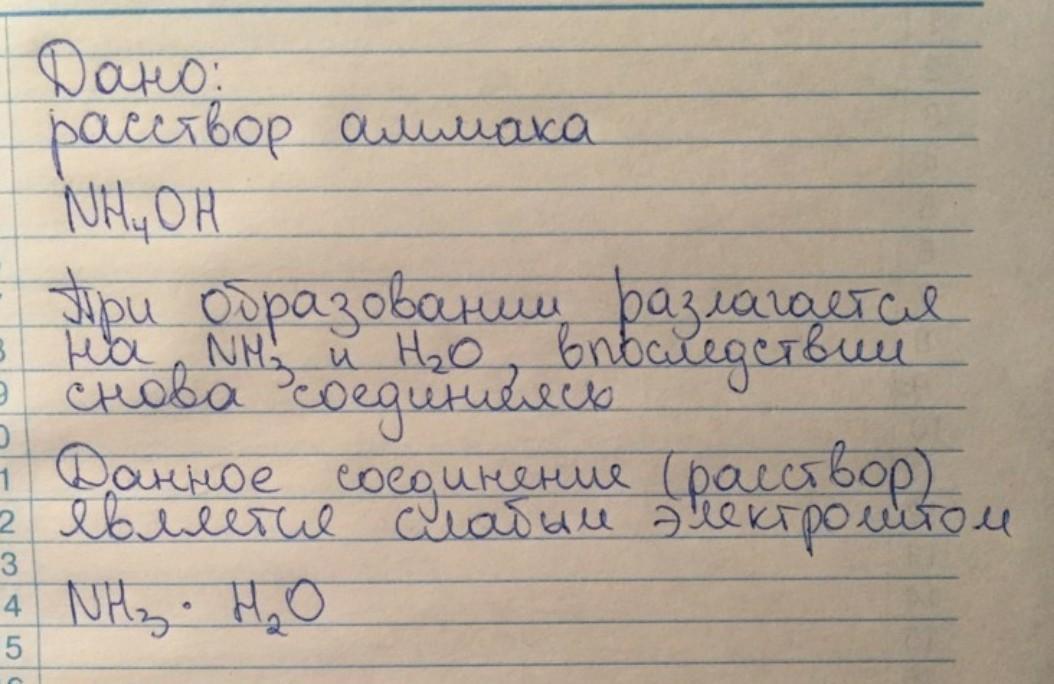 Дано:
расствор аммиака
NH₄OH
При образовании разлагается
на NH₃ и H₂O, впоследствии
снова соединяясь
Данное соединение (расствор)
является слабым электролитом
NH₃ · H₂O